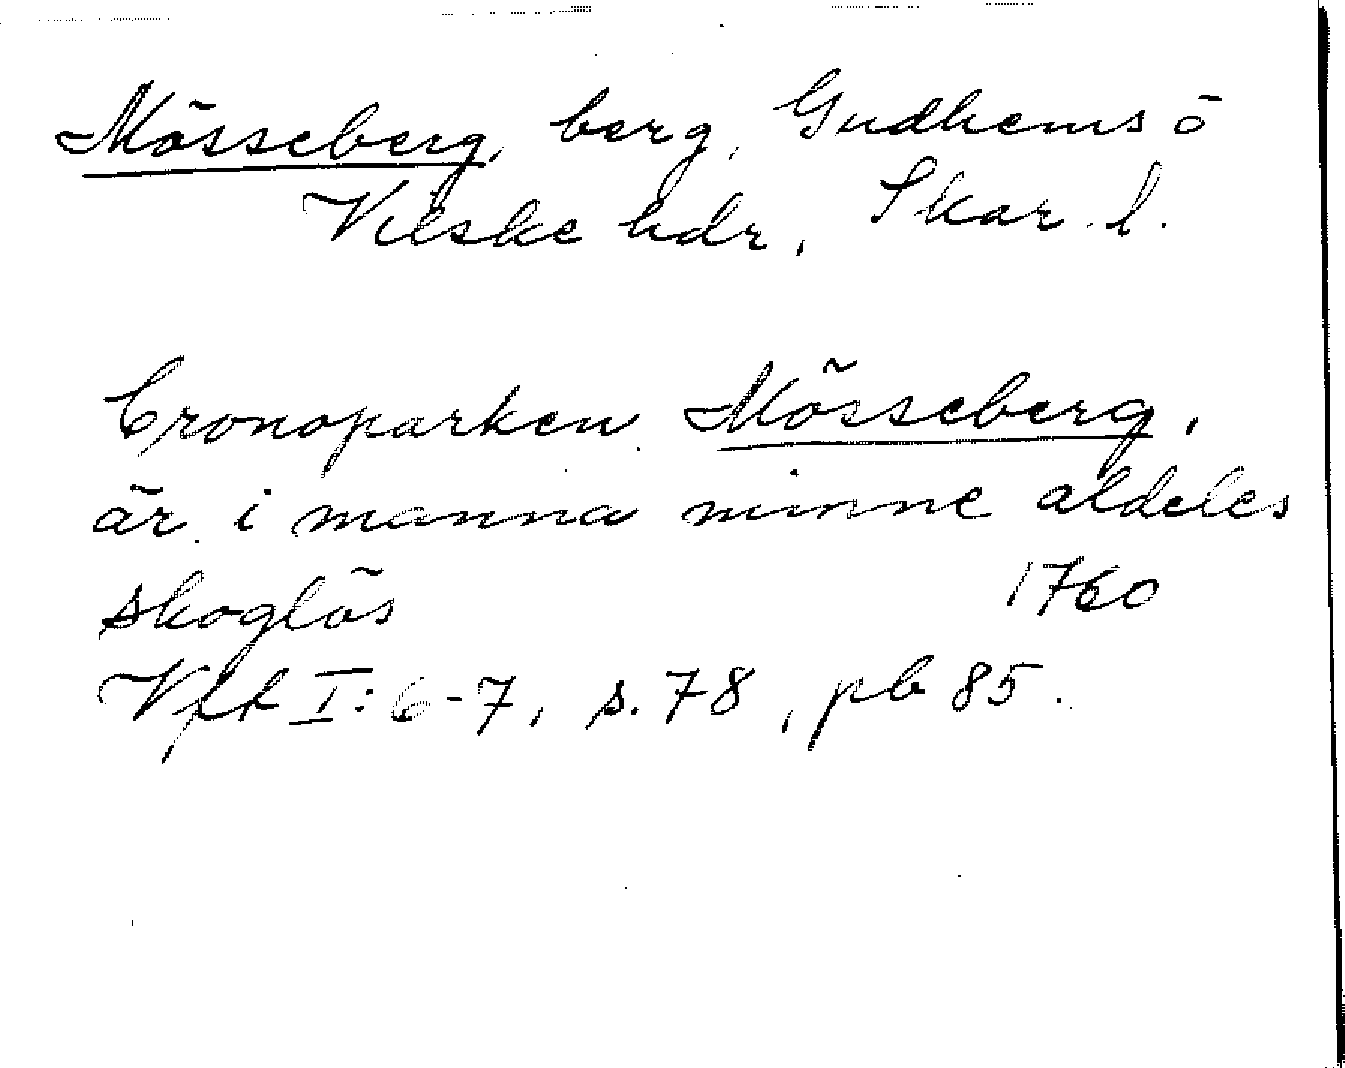 Mösseberg, berg, Gudhems o
Vilske hdr, Skar. l.
Cronoparken Mösseberg,
är i manna minne aldeles
skoglös 1760
Vft I: 6-7, s. 78, pb 85.